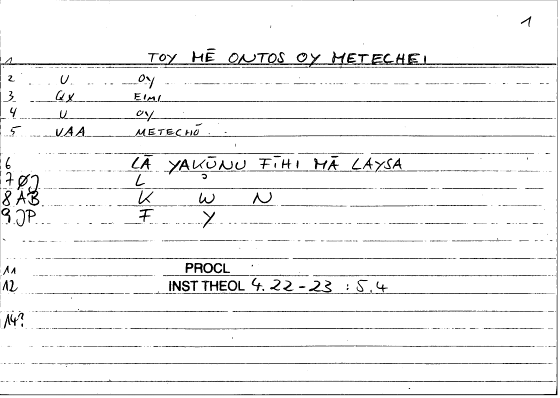 1
1 TOY MĒ ONTOS OY METECHEI
2 U OY
3 QX EIMI
4 U OY
5 VAA METECHŌ
6 LĀ YAKŪNU FĪHI MĀ LAYSA
7 ØJ L
8 AB K W N
9 JP F Y
11 PROCL
12 INST THEOL 4.22-23 : 5.4
14?